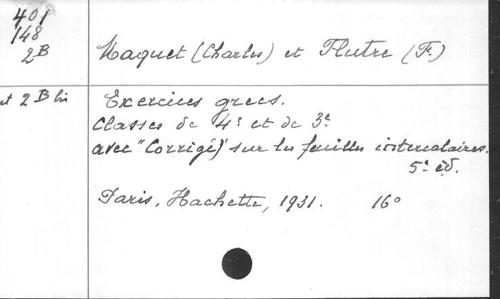 401
148
2B
Maquet (Charles) et Flutre (F.)
et 2 B bis
Exercices grecs.
Classes de 4e et de 3e
avec "Corrigés" sur les feuilles intercalaires.
5e éd.
Paris, Hachette, 1931. 16°